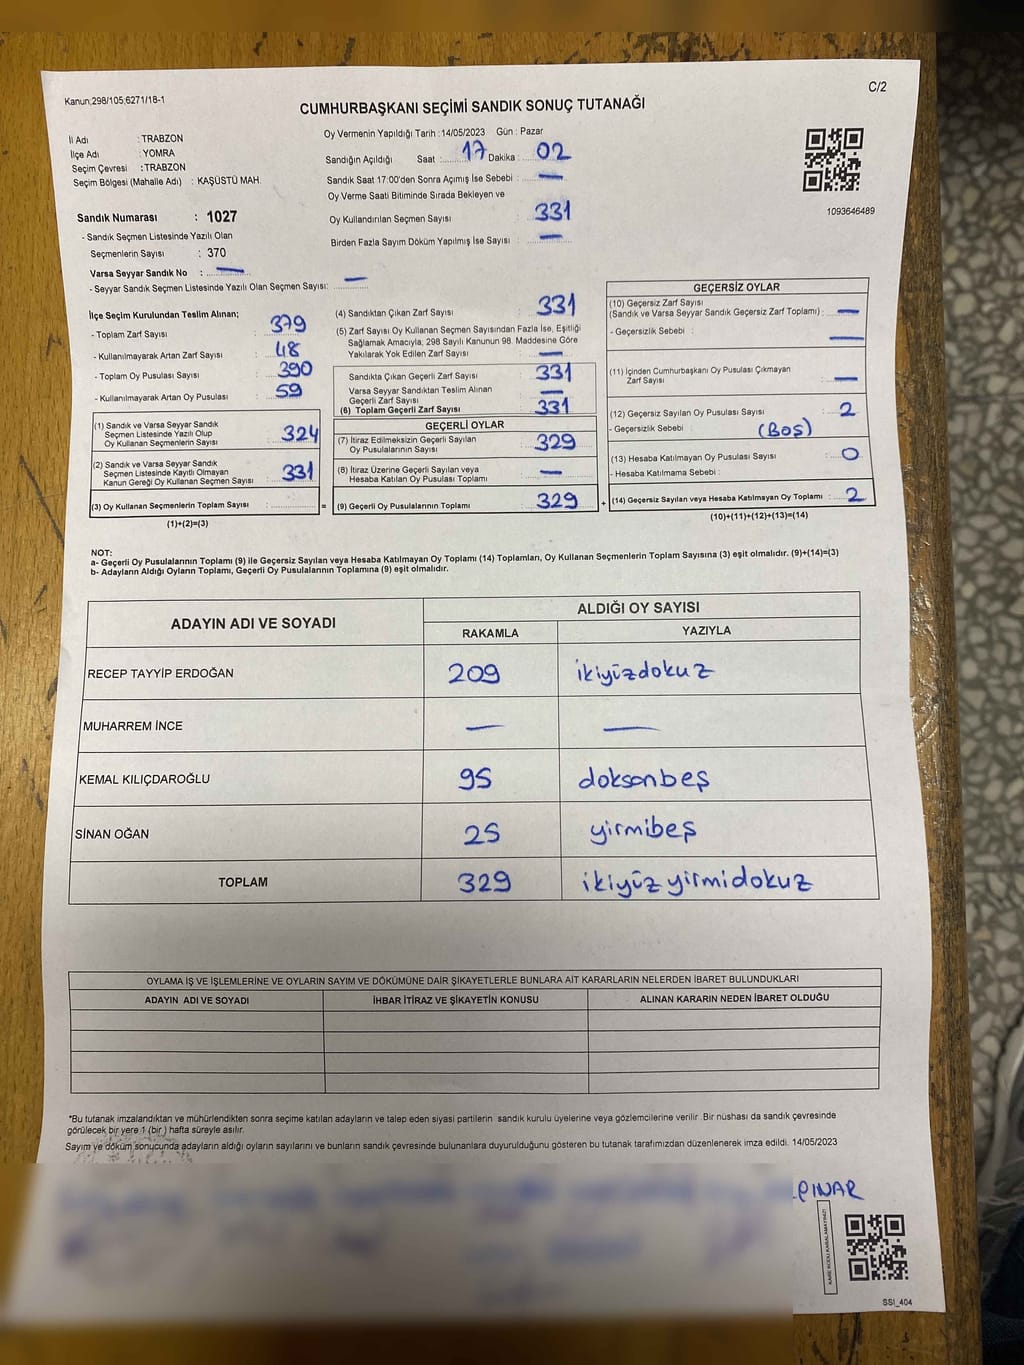 Kanun;298/105,6271/18-1
C/2
CUMHURBAŞKANI SEÇİMİ SANDIK SONUÇ TUTANAĞI
İl Adı : TRABZON
İlçe Adı : YOMRA
Seçim Çevresi : TRABZON
Seçim Bölgesi (Mahalle Adı) : KAŞÜSTÜ MAH.
Sandık Numarası : 1027
- Sandık Seçmen Listesinde Yazılı Olan
Seçmenlerin Sayısı : 370
Varsa Seyyar Sandık No : —
- Seyyar Sandık Seçmen Listesinde Yazılı Olan Seçmen Sayısı: —
Oy Vermenin Yapıldığı Tarih :14/05/2023 Gün : Pazar
Sandığın Açıldığı Saat : 17 Dakika : 02
Sandık Saat 17:00'den Sonra Açımış İse Sebebi : —
Oy Verme Saati Bitiminde Sırada Bekleyen ve
Oy Kullandırılan Seçmen Sayısı : 331
Birden Fazla Sayım Döküm Yapılmış İse Sayısı : —
1093646489
İlçe Seçim Kurulundan Teslim Alınan;
- Toplam Zarf Sayısı : 379
- Kullanılmayarak Artan Zarf Sayısı : 48
- Toplam Oy Pusulası Sayısı : 390
- Kullanılmayarak Artan Oy Pusulası : 59
(1) Sandık ve Varsa Seyyar Sandık
Seçmen Listesinde Yazılı Olup
Oy Kullanan Seçmenlerin Sayısı : 324
(2) Sandık ve Varsa Seyyar Sandık
Seçmen Listesinde Kayıtlı Olmayan
Kanun Gereği Oy Kullanan Seçmen Sayısı : 331
(3) Oy Kullanan Seçmenlerin Toplam Sayısı : =
(1)+(2)=(3)
(4) Sandıktan Çıkan Zarf Sayısı : 331
(5) Zarf Sayısı Oy Kullanan Seçmen Sayısından Fazla İse, Eşitliği
Sağlamak Amacıyla, 298 Sayılı Kanunun 98. Maddesine Göre
Yakılarak Yok Edilen Zarf Sayısı : —
Sandıkta Çıkan Geçerli Zarf Sayısı : 331
Varsa Seyyar Sandıktan Teslim Alınan
Geçerli Zarf Sayısı : —
(6) Toplam Geçerli Zarf Sayısı : 331
GEÇERLİ OYLAR
(7) İtiraz Edilmeksizin Geçerli Sayılan
Oy Pusulalarının Sayısı : 329
(8) İtiraz Üzerine Geçerli Sayılan veya
Hesaba Katılan Oy Pusulası Toplamı : —
(9) Geçerli Oy Pusulalarının Toplamı : 329 +
GEÇERSİZ OYLAR
(10) Geçersiz Zarf Sayısı
(Sandık ve Varsa Seyyar Sandık Geçersiz Zarf Toplamı) : —
- Geçersizlik Sebebi : —
(11) İçinden Cumhurbaşkanı Oy Pusulası Çıkmayan
Zarf Sayısı : —
(12) Geçersiz Sayılan Oy Pusulası Sayısı : 2
- Geçersizlik Sebebi : (Boş)
(13) Hesaba Katılmayan Oy Pusulası Sayısı : 0
- Hesaba Katılmama Sebebi :
(14) Geçersiz Sayılan veya Hesaba Katılmayan Oy Toplamı : 2
(10)+(11)+(12)+(13)=(14)
NOT:
a- Geçerli Oy Pusulalarının Toplamı (9) ile Geçersiz Sayılan veya Hesaba Katılmayan Oy Toplamı (14) Toplamları, Oy Kullanan Seçmenlerin Toplam Sayısına (3) eşit olmalıdır. (9)+(14)=(3)
b- Adayların Aldığı Oyların Toplamı, Geçerli Oy Pusulalarının Toplamına (9) eşit olmalıdır.
ADAYIN ADI VE SOYADI ALDIĞI OY SAYISI
RAKAMLA YAZIYLA
RECEP TAYYİP ERDOĞAN 209 ikiyüzdokuz
MUHARREM İNCE — —
KEMAL KILIÇDAROĞLU 95 doksanbeş
SİNAN OĞAN 25 yirmibeş
TOPLAM 329 ikiyüz yirmidokuz
OYLAMA İŞ VE İŞLEMLERİNE VE OYLARIN SAYIM VE DÖKÜMÜNE DAİR ŞİKAYETLERLE BUNLARA AİT KARARLARIN NELERDEN İBARET BULUNDUKLARI
ADAYIN ADI VE SOYADI İHBAR İTİRAZ VE ŞİKAYETİN KONUSU ALINAN KARARIN NEDEN İBARET OLDUĞU
*Bu tutanak imzalandıktan ve mühürlendikten sonra seçime katılan adayların ve talep eden siyasi partilerin sandık kurulu üyelerine veya gözlemcilerine verilir. Bir nüshası da sandık çevresinde
görülecek bir yere 1 (bir) hafta süreyle asılır.
Sayım ve döküm sonucunda adayların aldığı oyların sayılarını ve bunların sandık çevresinde bulunanlara duyurulduğunu gösteren bu tutanak tarafımızdan düzenlenerek imza edildi. 14/05/2023
PINAR
KARE KODU KARALAMAYINIZ!
SSI_404